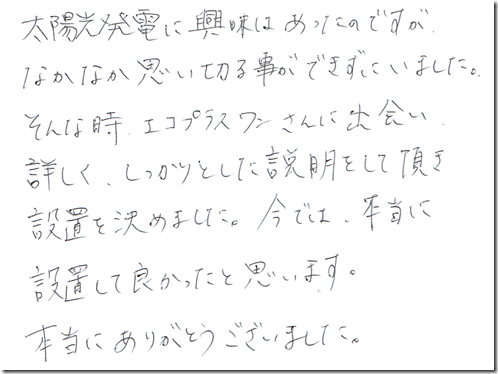 太陽光発電に興味はあったのですが、
なかなか思い切る事ができずにいました。
そんな時、エコプラスワンさんに出会い、
詳しく、しっかりとした説明をして頂き
設置を決めました。今では、本当に
設置して良かったと思います。
本当にありがとうございました。